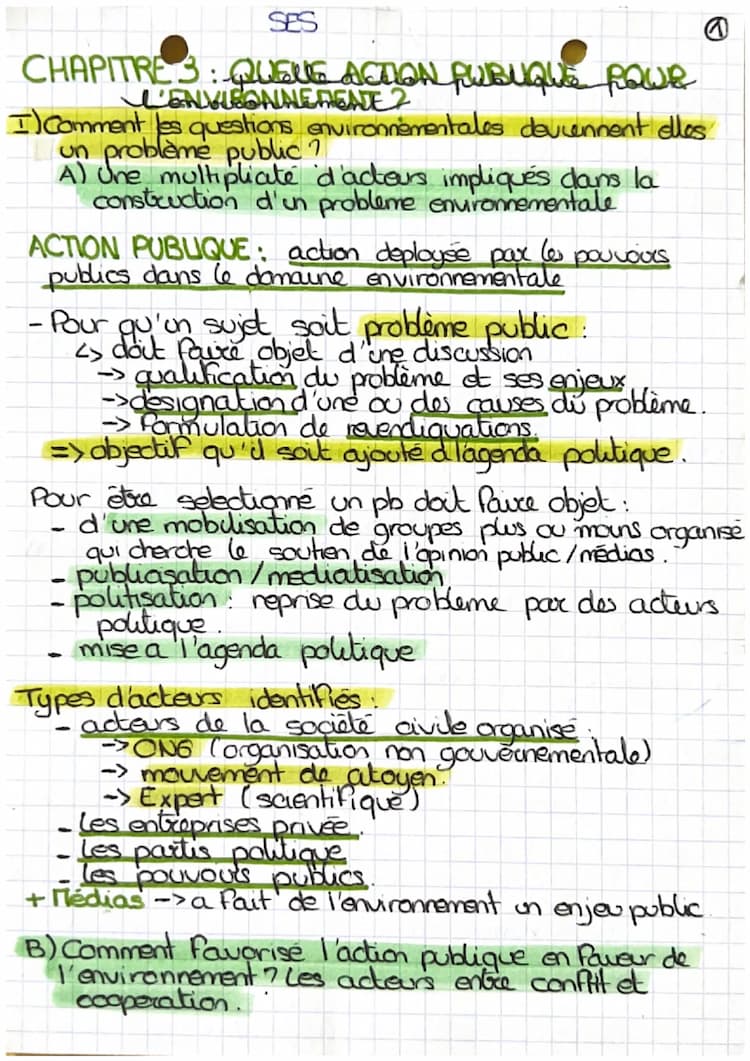 SES
1
CHAPITRE 3 : QUELLE ACTION PUBLIQUE POUR
L'ENVIRONNEMENT ?
I) Comment les questions environnementales deviennent elles
un problème public ?
A) Une multiplicité d'acteurs impliqués dans la
construction d'un problème environnementale
ACTION PUBLIQUE : action deployée par les pouvoirs
publics dans le domaine environnementale
- Pour qu'un sujet soit problème public :
↳ doit faire objet d'une discussion
-> qualification du problème et ses enjeux
-> designation d'une ou des causes du problème.
-> formulation de revendiquations.
=> objectif qu'il soit ajouté à l'agenda politique.
Pour être selectionné un pb doit faire objet :
- d'une mobilisation de groupes plus ou moins organisé
qui cherche le soutien de l'opinion public / médias.
- publicisation / mediatisation
- politisation : reprise du probleme par des acteurs
politique.
- mise a l'agenda politique
Types d'acteurs identifiés :
- acteurs de la société civile organisé :
-> ONG (organisation non gouvernementale)
-> mouvement de citoyen.
-> Expert (scientifique)
- Les entreprises privée.
- Les partis politique
- les pouvoirs publics.
+ Médias -> a fait de l'environnement un enjeu public.
B) Comment favorisé l'action publique en faveur de
l'environnement ? Les acteurs entre conflit et
cooperation.